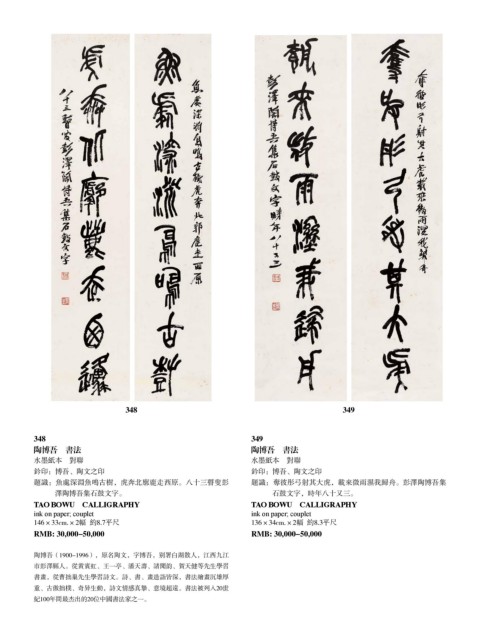 魚處深淵鳥鳴古樹虎奔北郭鹿走西原
八十三瞽叟彭澤陶博吾集石鼓文字
彭澤陶博吾集石鼓文字時年八十又三
348
349
348
陶博吾　書法
水墨紙本　對聯
鈐印：博吾、陶文之印
題識：魚處深淵魚鳴古樹，虎奔北廓鹿走西原。八十三瞽叟彭
澤陶博吾集石鼓文字。
TAO BOWU　CALLIGRAPHY
ink on paper; couplet
146 x 33cm. x 2幅　約8.7平尺
RMB: 30,000–50,000
陶博吾（1900–1996），原名陶文，字博吾，別署白湖散人，江西九江
市彭澤縣人。從黃賓虹、王一亭、潘天壽、諸聞韻、賀天健等先生學習
書畫，從曹拙巢先生學習詩文。詩、書、畫造詣皆深，書法繪畫沉雄厚
重、古傲拙樸、奇異生動，詩文情感真摯、意境超遠。書法被列入20世
紀100年間最杰出的20位中國書法家之一。
349
陶博吾　書法
水墨紙本　對聯
鈐印：博吾、陶文之印
題識：奪彼彤弓射其大虎，載來微雨濕我歸舟。彭澤陶博吾集
石鼓文字，時年八十又三。
TAO BOWU　CALLIGRAPHY
ink on paper; couplet
136 x 34cm. x 2幅　約8.3平尺
RMB: 30,000–50,000